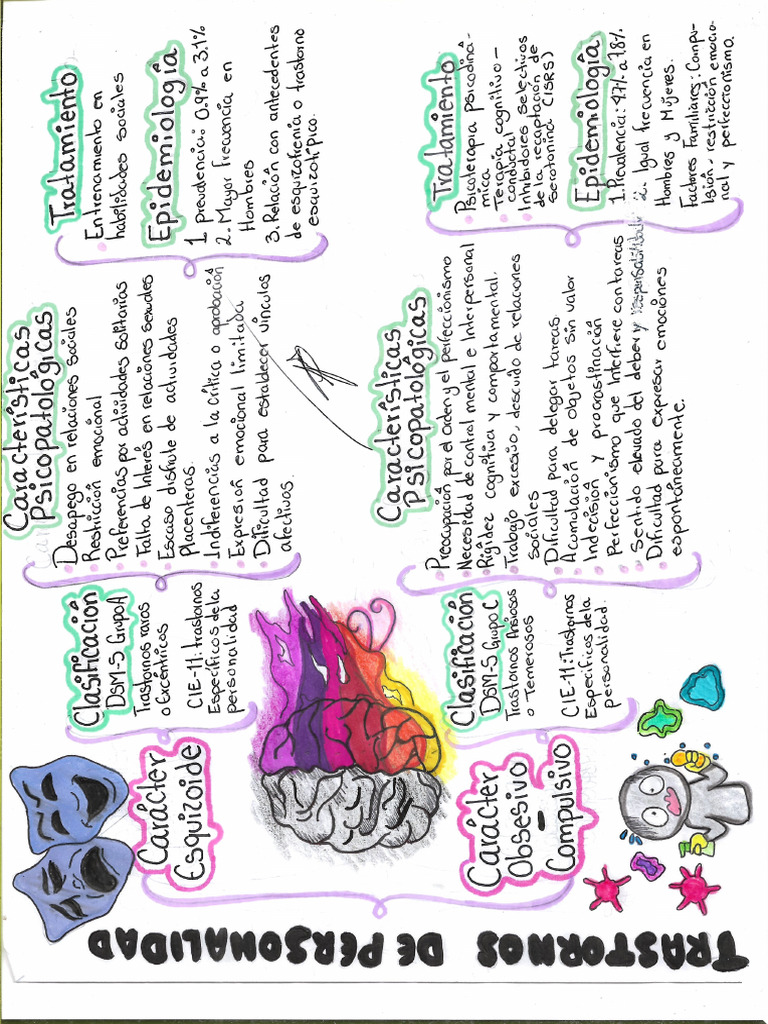 TRASTORNOS DE PERSONALIDAD
Carácter
Esquizoide
Clasificación
DSM-5 Grupo A
Trastornos raros
o Excéntricos
CIE-11: trastornos
Específicos de la
personalidad
Características
Psicopatológicas
Desapego en relaciones sociales
Restricción emocional
Preferencias por actividades solitarias
Falta de Interés en relaciones sexuales
Escaso disfrute de actividades
Placenteras.
Indiferencias a la crítica o aprobación
Expresión emocional limitada
Dificultad para establecer vínculos
afectivos.
Tratamiento
Entrenamiento en
habilidades sociales
Epidemiología
1. prevalencia 0.9% a 3.1%
2. Mayor frecuencia en
Hombres
3. Relación con antecedentes
de esquizofrenia o trastorno
esquizotípico.
Carácter
Obsesivo
-
Compulsivo
Clasificación
DSM-5 Grupo C
Trastornos Ansiosos
o Temerosos
CIE-11: Trastornos
Específicos de la
personalidad.
Características
Psicopatológicas
Preocupación por el orden y el perfeccionismo
Necesidad de control mental e Interpersonal
Rigidez cognitiva y comportamental.
Trabajo excesivo, descuido de relaciones
sociales
Dificultad para delegar tareas.
Acumulación de objetos sin valor
Indecisión y procrastinación
Perfeccionismo que Interfiere con tareas
Sentido elevado del deber y responsabilidad
Dificultad para expresar emociones
espontáneamente.
Tratamiento
Psicoterapia psicodiná-
mica
Terapia cognitivo-
conductal
Inhibidores selectivos
de la recaptación de
serotonina (ISRS)
Epidemiología
1. Prevalencia: 4.7% a 7.8%
2. Igual frecuencia en
Hombres y Mujeres.
Factores Familiares: Compu-
lsión, restricción emocio-
nal y perfeccionismo.